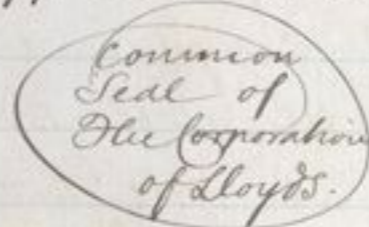 Common
Seal of
The Corporation
of Lloyds.